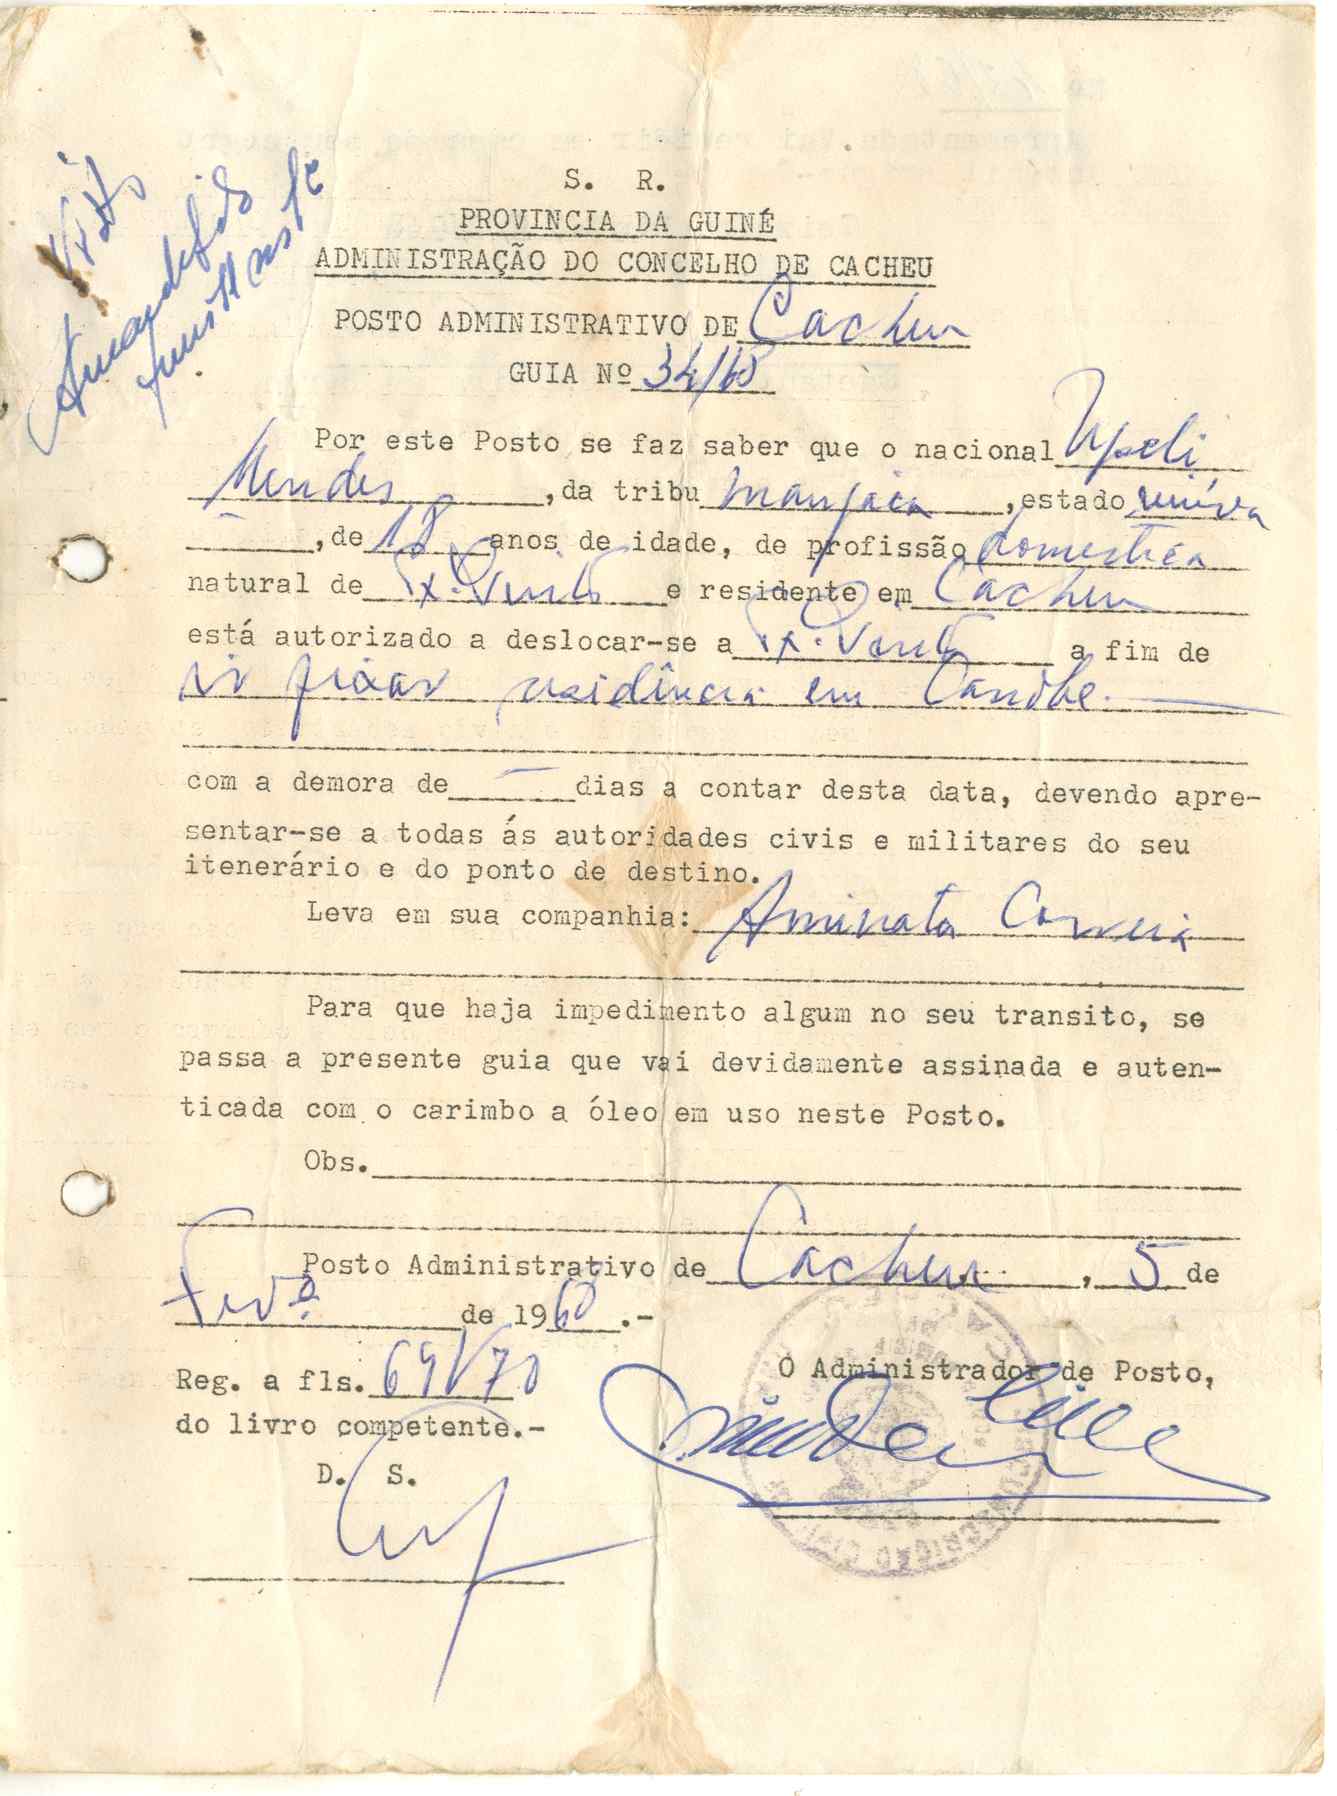 Visto
S. R.
PROVINCIA DA GUINÉ
ADMINISTRAÇÃO DO CONCELHO DE CACHEU
POSTO ADMINISTRATIVO DE Cacheu
GUIA Nº 34/68
Por este Posto se faz saber que o nacional Upeli
Mendes, da tribu manjaca, estado viúva
, de 18 anos de idade, de profissão doméstica
natural de Tx. Pinto e residente em Cacheu
está autorizado a deslocar-se a Tx. Pinto a fim de
ir fixar residência em Canobe.
com a demora de — dias a contar desta data, devendo apre-
sentar-se a todas ás autoridades civis e militares do seu
itenerário e do ponto de destino.
Leva em sua companhia: Aminata Correia
Para que haja impedimento algum no seu transito, se
passa a presente guia que vai devidamente assinada e auten-
ticada com o carimbo a óleo em uso neste Posto.
Obs.
Posto Administrativo de Cacheu, 5 de
Fevº de 1968.-
Reg. a fls. 69V/70
O Administrador de Posto,
do livro competente.-
D. S.